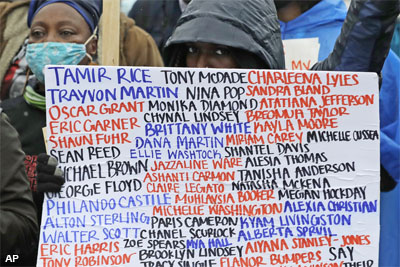 TAMIR RICE TONY MCDADE CHARLEENA LYLES
TRAYVON MARTIN NINA POP SANDRA BLAND
OSCAR GRANT MONIKA DIAMOND ATATIANA JEFFERSON
ERIC GARNER CHYNAL LINDSEY BREONNA TAYLOR
SHAUN FUHR BRITTANY WHITE KAYLA MOORE
DANA MARTIN MIRIAM CAREY MICHELLE CUSSEA
SEAN REED ELLIE WASHTOCK SHANTEL DAVIS
MICHAEL BROWN JAZZALINE WARE ALESIA THOMAS
GEORGE FLOYD ASHANTI CARMON TANISHA ANDERSON
CLAIRE LEGATO NATASHA MCKENA
PHILANDO CASTILE MUHLAYSIA BOOKER MEGAN HOCKDAY
ALTON STERLING MICHELLE WASHINGTON ALEXIA CHRISTIAN
WALTER SCOTT PARIS CAMERON KYAM LIVINGSTON
CHANEL SCURLOCK ALBERTA SPRUIL
ERIC HARRIS ZOE SPEARS MYA HALL AIYANA STANLEY-JONES
TONY ROBINSON BROOKLYN LINDSEY ELANOR BUMPERS SAY
TRACY SINGLE THEIR
AP